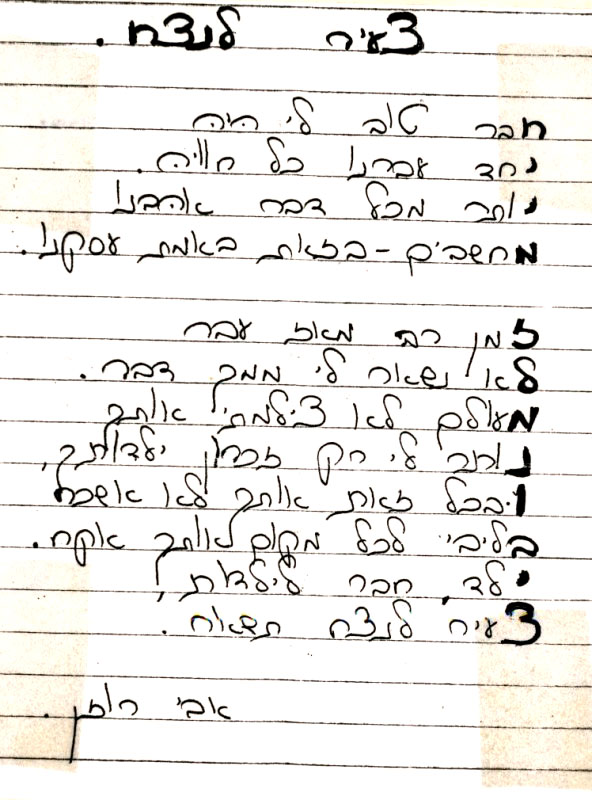 צעיר לנצח.
חבר טוב לי היה
יחד עברנו כל חוויה.
יותר מכל דבר אהבנו
מחשבים - בזאת באמת עסקנו.
זמן רב מאז עבר
לא נשאר לי ממך דבר.
מעולם לא צילמתי אותך
נותר לי רק זכרון ילדותך,
ובכל זאת אותך לא אשכח
בליבי לכל מקום אותך אקח.
ילד, חבר לילדות,
צעיר לנצח תשאר.
אבי רוזן.